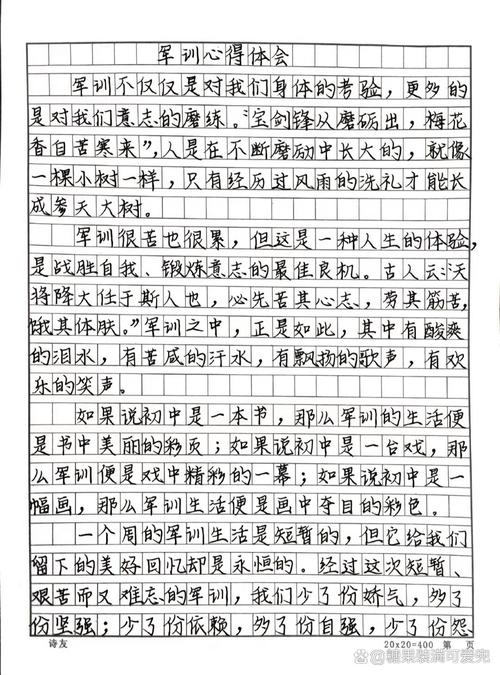 军训心得体会
军训不仅仅是对我们身体的考验，更多的
是对我们意志的磨练。“宝剑锋从磨砺出，梅花
香自苦寒来”，人是在不断磨励中长大的，就像
一棵小树一样，只有经历过风雨的洗礼才能长
成参天大树。
军训很苦也很累，但这是一种人生的体验，
是战胜自我、锻炼意志的最佳良机。古人云：“天
将降大任于斯人也，必先苦其心志，劳其筋苦，
饿其体肤。”军训之中，正是如此，其中有酸爽
的泪水，有苦咸的汗水，有飘扬的歌声，有欢
乐的笑声。
如果说初中是一本书，那么军训的生活便
是书中美丽的彩页；如果说初中是一台戏，那
么军训便是戏中精彩的一幕；如果说初中是一
幅画，那么军训生活便是画中夺目的彩色。
一个周的军训生活是短暂的，但它给我们
留下的美好回忆却是永恒的。经过这次短暂、
艰苦而又难忘的军训，我们少了份娇气，多了
份坚强；少了份依赖，多了份自强，少了份怨
诗友 20x20=400 第 页
@糖果装满可爱兜